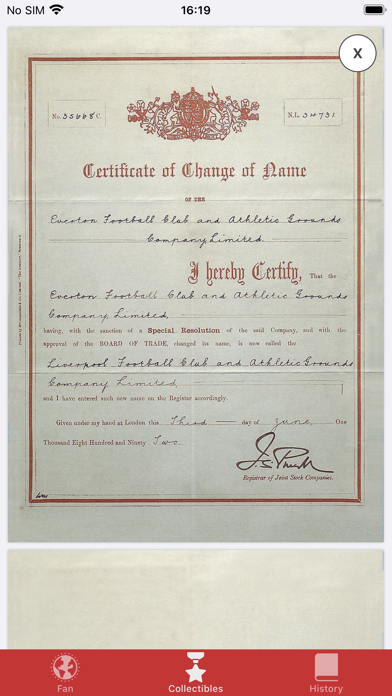 No SIM 16:19
X
No. 35668 C. N.L. 34731.
Certificate of Change of Name
OF THE
Everton Football Club and Athletic Grounds
Company Limited.
I hereby Certify, That the
Everton Football Club and Athletic Grounds
Company, Limited,
having, with the sanction of a Special Resolution of the said Company, and with the
approval of the BOARD OF TRADE, changed its name, is now called the
Liverpool Football Club and Athletic Grounds
Company Limited,
and I have entered such new name on the Register accordingly.
Given under my hand at London this Third day of June, One
Thousand Eight Hundred and Ninety Two.
Registrar of Joint Stock Companies.
Fan Collectibles History